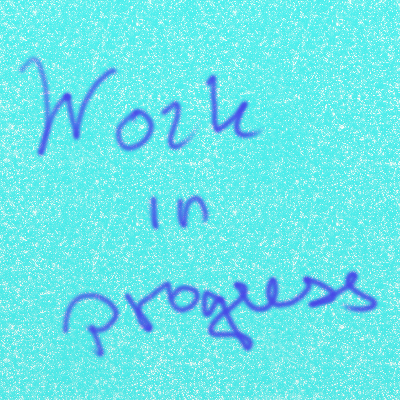 Work
in
progress